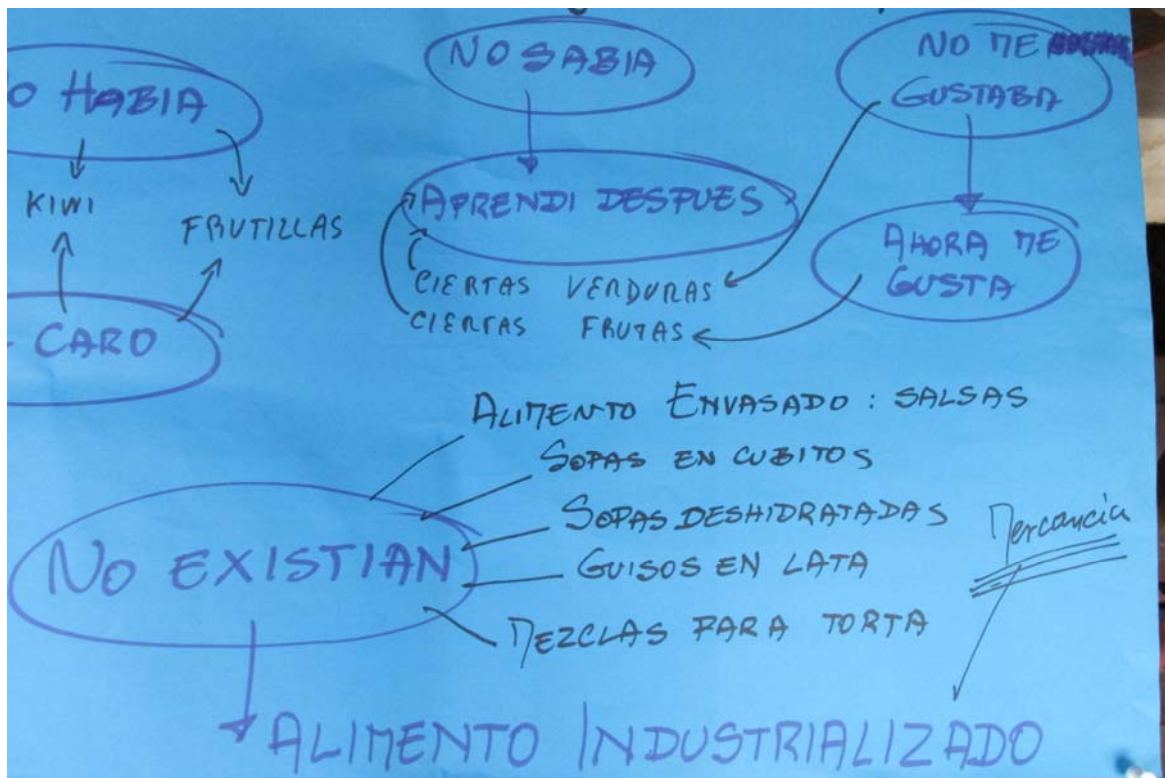 O HABIA
KIWI
FRUTILLAS
CARO
NO SABIA
APRENDI DESPUES
CIERTAS VERDURAS
CIERTAS FRUTAS
NO ME
GUSTABA
AHORA ME
GUSTA
NO EXISTIAN
ALIMENTO ENVASADO: SALSAS
SOPAS EN CUBITOS
SOPAS DESHIDRATADAS
GUISOS EN LATA
MEZCLAS PARA TORTA
Mercancía
ALIMENTO INDUSTRIALIZADO